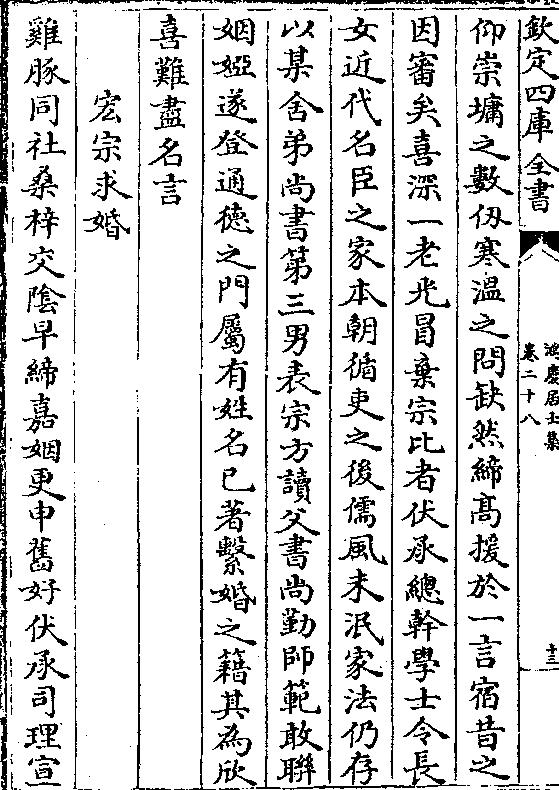 欽定四庫全書
鴻慶居士集
卷二十八
十三
仰崇墉之數仭寒溫之問缺然締髙援於一言宿昔之
因審矣喜深一老光冒棄宗比者伏承總幹學士令長
女近代名臣之家本朝循吏之後儒風未泯家法仍存
以某舍弟尚書第三男表宗方讀父書尚勤師範敢聨
姻婭遂登通德之門屬有姓名已著繫婚之籍其為欣
喜難盡名言
宏宗求婚
雞豚同社桑梓交陰早締嘉姻更申舊好伏承司理宣